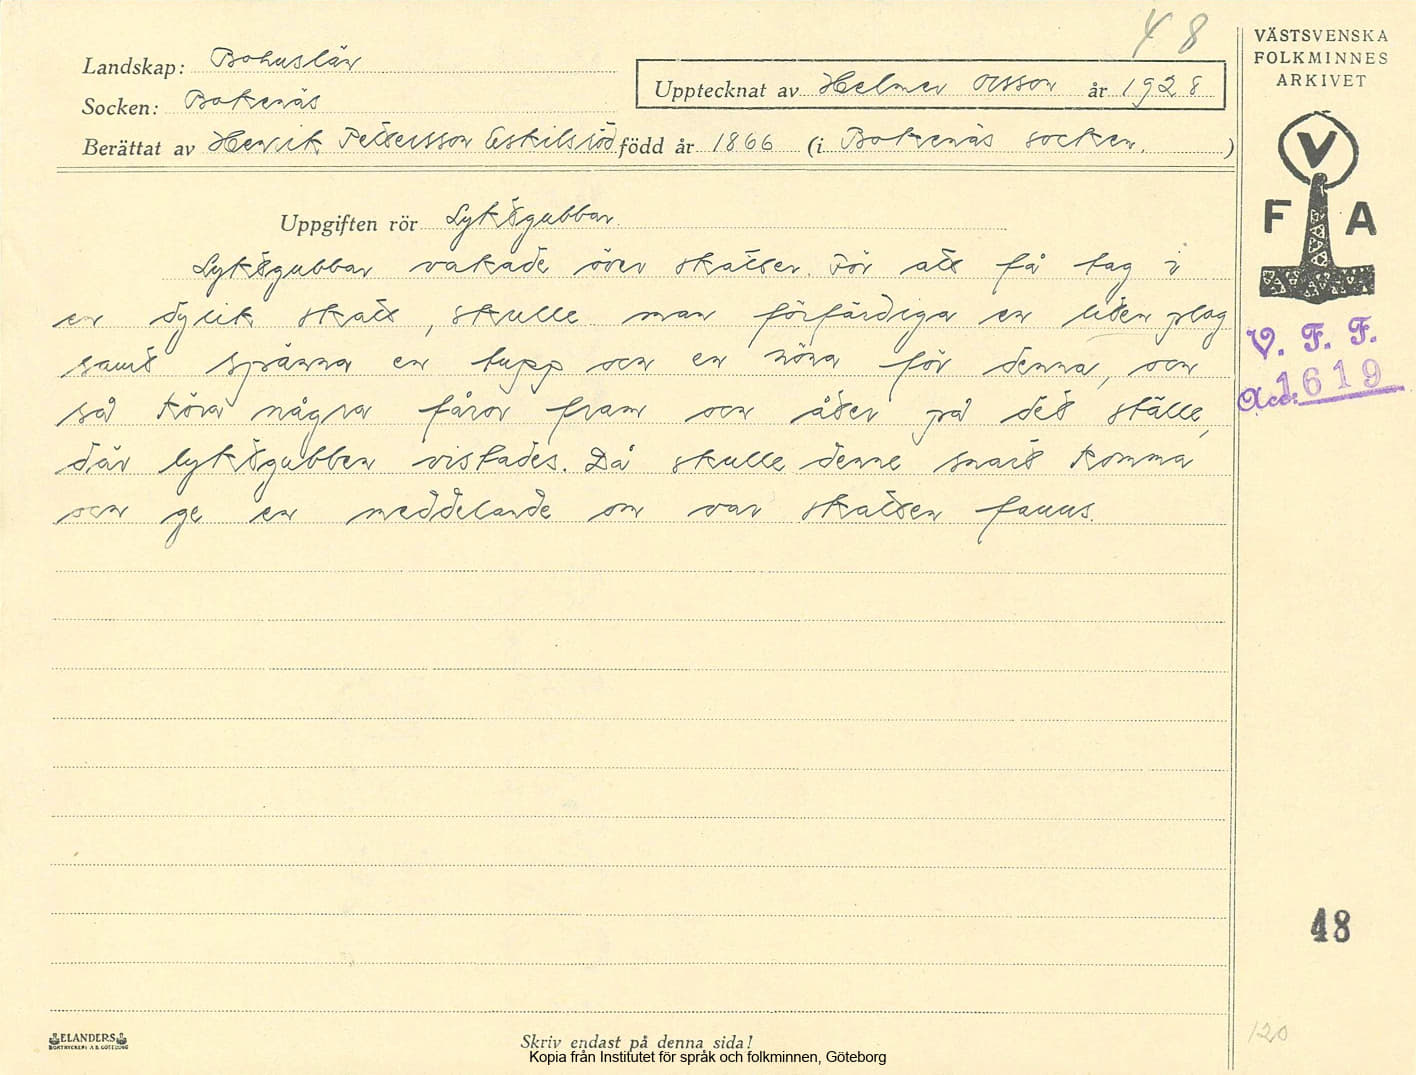 48
VÄSTSVENSKA
FOLKMINNES
ARKIVET
Landskap: Bohuslän
Upptecknat av Helmer Olsson år 1928
Socken: Bokenäs
Berättat av Henrik Pettersson Eskilsröd född år 1866 (i Bokenäs socken. )
V
F A
Uppgiften rör Lyktgubbar.
Lyktgubbar vakade över skatter. För att få tag i
en dylik skatt, skulle man förfärdiga en liten plog
samt spänna en tupp och en höna för denna, och
så köra några fåror fram och åter på det ställe,
där lyktgubben vistades. Då skulle denne snart komma
och ge en meddelande om var skatten fanns.
V. F. F.
Acc. 1619
48
120
ELANDERS
BOKTRYCKERI A.B. GÖTEBORG
Skriv endast på denna sida!
Kopia från Institutet för språk och folkminnen, Göteborg